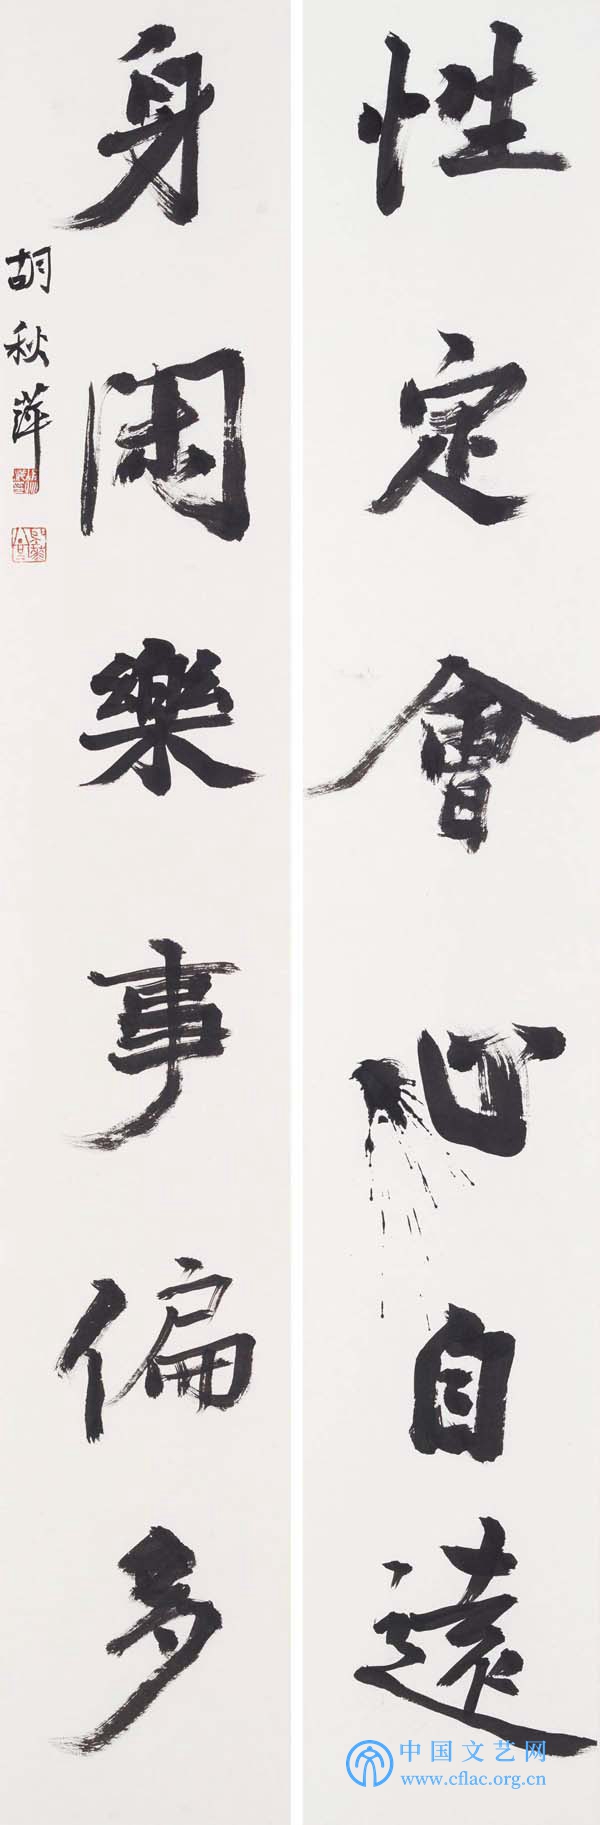 性定會心自遠
身閑樂事偏多
胡秋萍
中国文艺网
www.cflac.org.cn